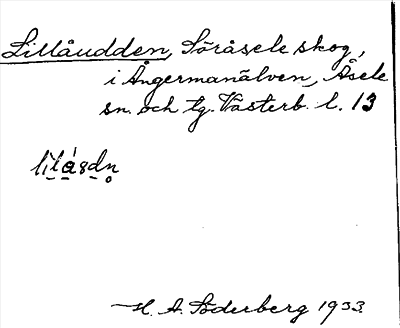 Lillåudden, Söråsele skog,
i Ångermanälven, Åsele
sn. och tg. Västerb. l. 13
H. A. Söderberg 1933.